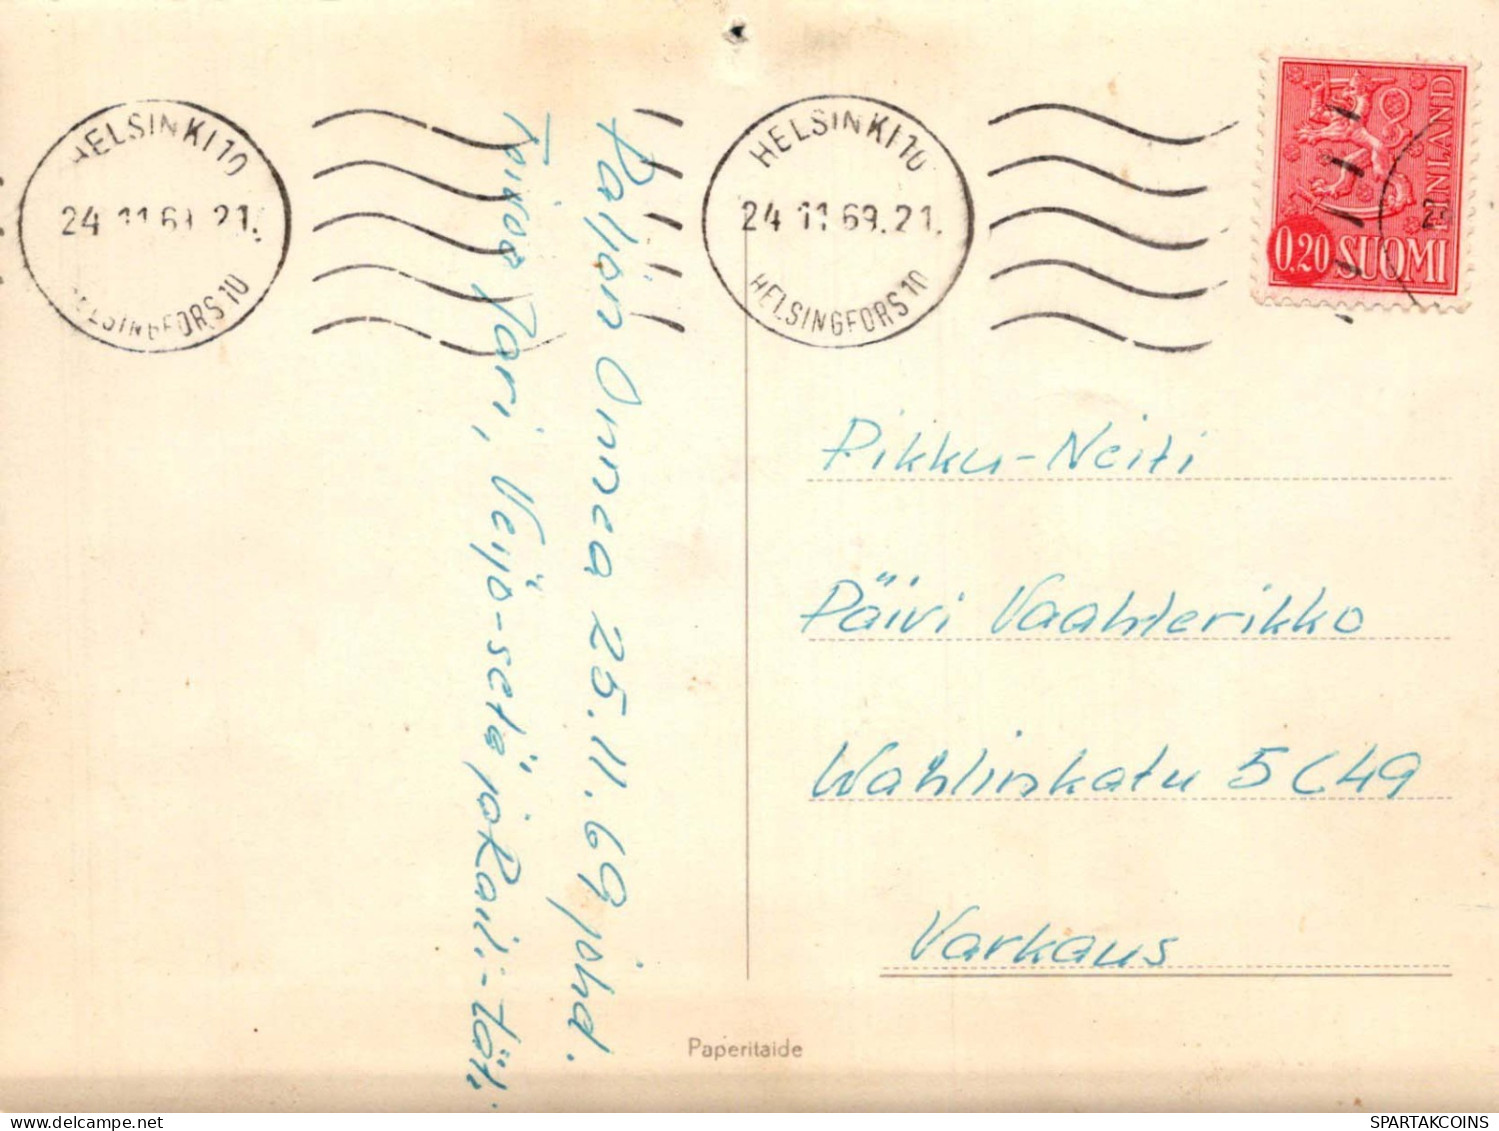 HELSINKI 10
24 11 69. 21.
HELSINGFORS 10
HELSINKI 10
24 11 69. 21.
HELSINGFORS 10
FINLAND
0,20 SUOMI
Paljon Onnea 25.11.69 joht.
Toivoo Pari, Veijo-setä ja Raili-täti.
Pikku-Neiti
Päivi Vaahterikko
Wahlinkatu 5 C 49
Varkaus
Paperitaide
SPARTAKCOINS
delcampe.net